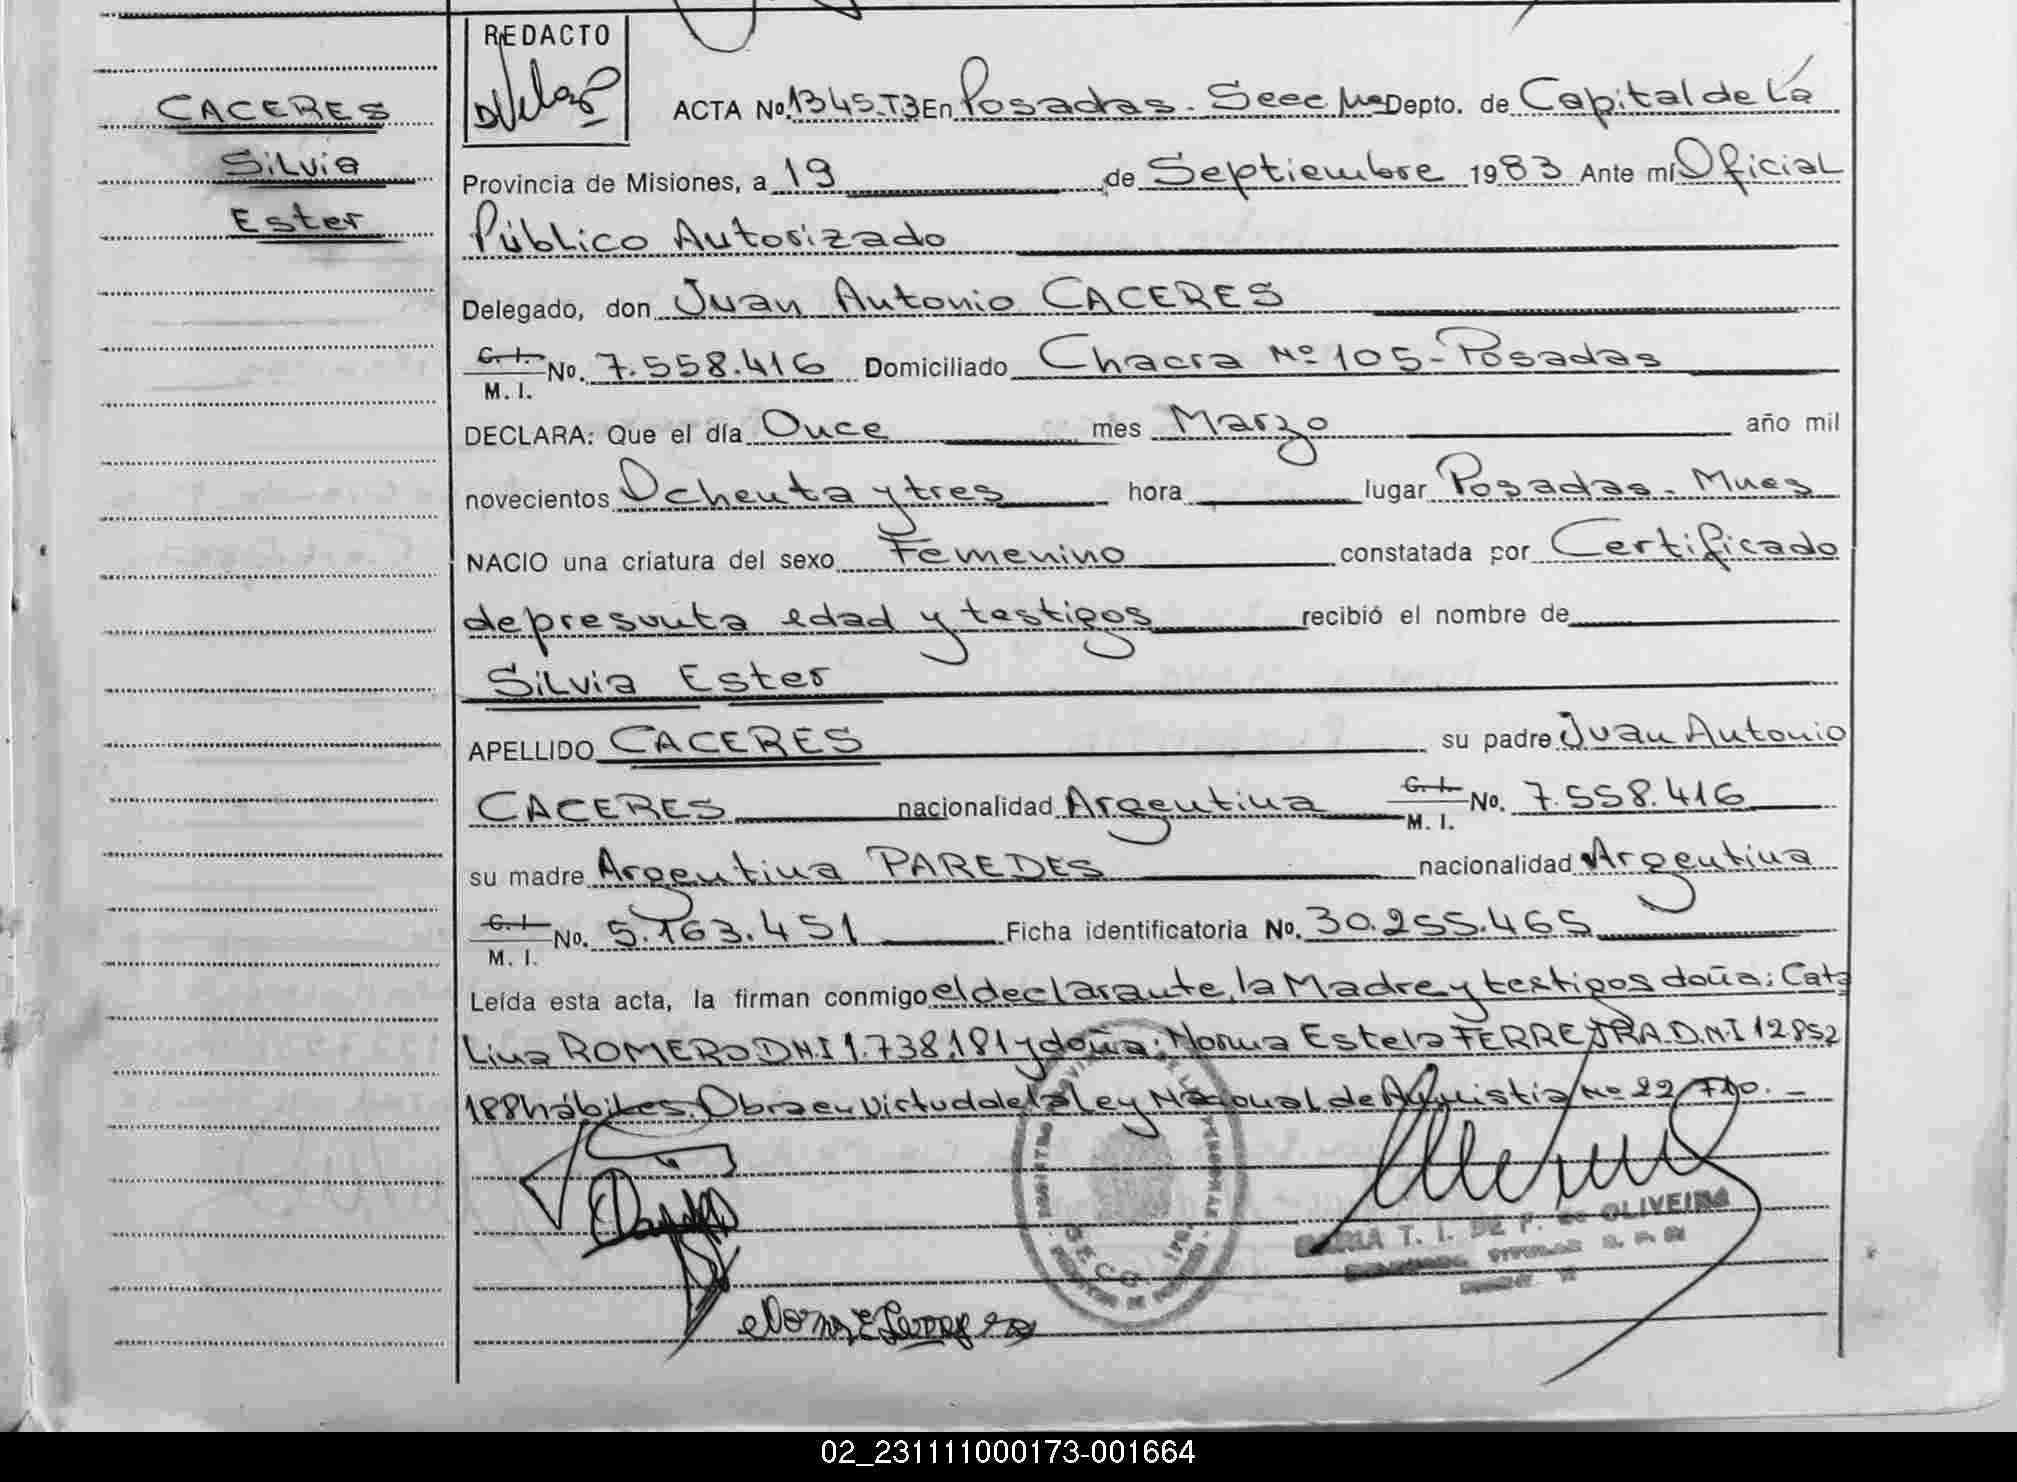 REDACTO
CACERES
Silvia
Ester
ACTA No. 1345-T3 En Posadas. Secc Depto. de Capital de La
Provincia de Misiones, a 19 de Septiembre 1983 Ante mí Oficial
Público Autorizado
Delegado, don Juan Antonio CACERES
C. I. M. I. No. 7.558.416 Domiciliado Chacra Nº 105 - Posadas
DECLARA: Que el día Once mes Marzo año mil
novecientos Ochenta y tres hora lugar Posadas. Mnes
NACIO una criatura del sexo Femenino constatada por Certificado
de presunta edad y testigos recibió el nombre de
Silvia Ester
APELLIDO CACERES su padre Juan Antonio
CACERES nacionalidad Argentina C. I. M. I. No. 7.558.416
su madre Argentina PAREDES nacionalidad Argentina
C. I. M. I. No. 5.163.451 Ficha identificatoria No. 30.255.465
Leída esta acta, la firman conmigo el declarante, la Madre y testigos doña: Cata
lina ROMERO D.N.I 1.738.181 y doña: Norma Estela FERREJRA. D.N.I 12.852
188 hábiles. Obra en virtud de la Ley Nacional de Amnistia Nº 22.710. —
MARIA T. I. DE F. DE OLIVEIRA
02_231111000173-001664